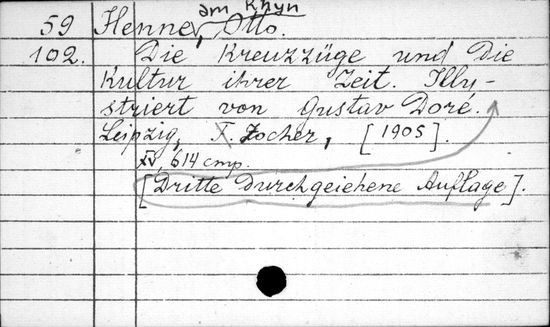 am Rhyn
59 Henne, Otto.
102. Die Kreuzzüge und die
Kultur ihrer Zeit. Illu-
striert von Gustav Doré.
Leipzig, F. Zocher, [1905].
XV, 614 стр.
[Dritte durchgeiehene Auflage].